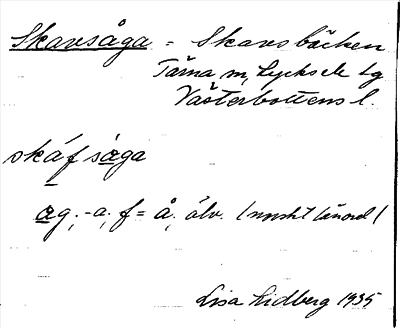 Skavsåga = Skavsbäcken
Tärna m, Lycksele lg
Västerbottens l.
skáfsaga
ag, -a, f = å, älv. (norskt lånord)
Lisa Lidberg 1935